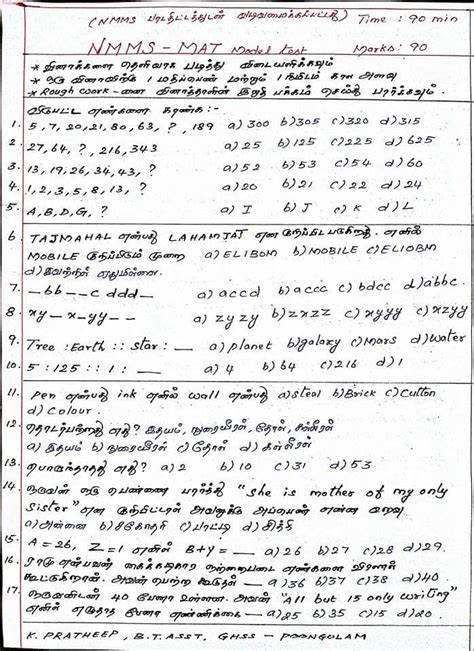 (NMMS பாடதிட்டத்துடன் வடிவமைக்கப்பட்டது) Time : 90 min
NMMS - MAT Model Test Marks: 90
* வினாக்களை தெளிவாக படித்து விடையளிக்கவும்
* ஒரு வினாவிற்கு 1 மதிப்பெண் மற்றும் 1 நிமிடம் கால அளவு
* Rough work-னை வினாத்தாளின் இறுதி பக்கம் செய்து பார்க்கவும்.
விடுபட்ட எண்களை காண்க:-
1. 5, 7, 20, 21, 80, 63, ?, 189 a) 300 b) 305 c) 320 d) 315
2. 27, 64, ?, 216, 343 a) 25 b) 125 c) 225 d) 625
3. 13, 19, 26, 34, 43, ? a) 52 b) 53 c) 54 d) 60
4. 1, 2, 3, 5, 8, 13, ? a) 20 b) 21 c) 22 d) 24
5. A, B, D, G, ? a) I b) J c) K d) L
6. TAJMAHAL என்பது LAHAMJAT என குறிப்பிடபடுகிறது. எனில்
MOBILE குறிப்பிடும் முறை a) ELIBOM b) MOBILE c) ELIOBM
d) இவற்றில் எதுமில்லை.
7. _ bb _ _ c ddd _ a) accd b) accc c) bdcc d) abbc.
8. xy _ x _ yy _ _ a) zyzy b) zxzz c) xyyy d) xzyz
9. Tree : Earth :: star : _ a) planet b) galaxy c) Mars d) water
10. 5 : 125 :: 1 : _ a) 4 b) 64 c) 216 d) 1
11. pen என்பது ink எனில் wall என்பது a) steal b) Brick c) Cutton
d) Colour.
12. தொடர்பற்றது எது? இதயம், நுரையீரல், தோள், கல்லீரல்
a) இதயம் b) நுரையீரல் c) தோள் d) கல்லீரல்
13. பொருந்தாதது எது? a) 2 b) 10 c) 31 d) 53
14. ஒருவன் ஒரு பெண்ணை பார்த்து "She is mother of my only
Sister" என குறிப்பிட்டால் அவனுக்கு அப்பெண் என்ன உறவு
a) அன்னை b) சகோதரி c) பாட்டி d) சித்தி
15. A = 26, Z = 1 எனில் B + Y = _ a) 26 b) 27 c) 28 d) 29.
16. ராமு என்பவன் கைக்கடிகார ஒற்றைபடை எண்களை விரலால்
கூட்டுகிறான். அவன் பெற்ற கூடுதல் _ a) 36 b) 37 c) 38 d) 40.
17. ஒருவனிடன் 40 பேனா உள்ளன. அவன் "All but 15 only writing"
எனில் எழுதாத பேனா எண்ணிக்கை - a) 25 b) 35 c) 15 d) 20.
K. PRATHEEP, B.T. ASST, GHSS - POONGULAM